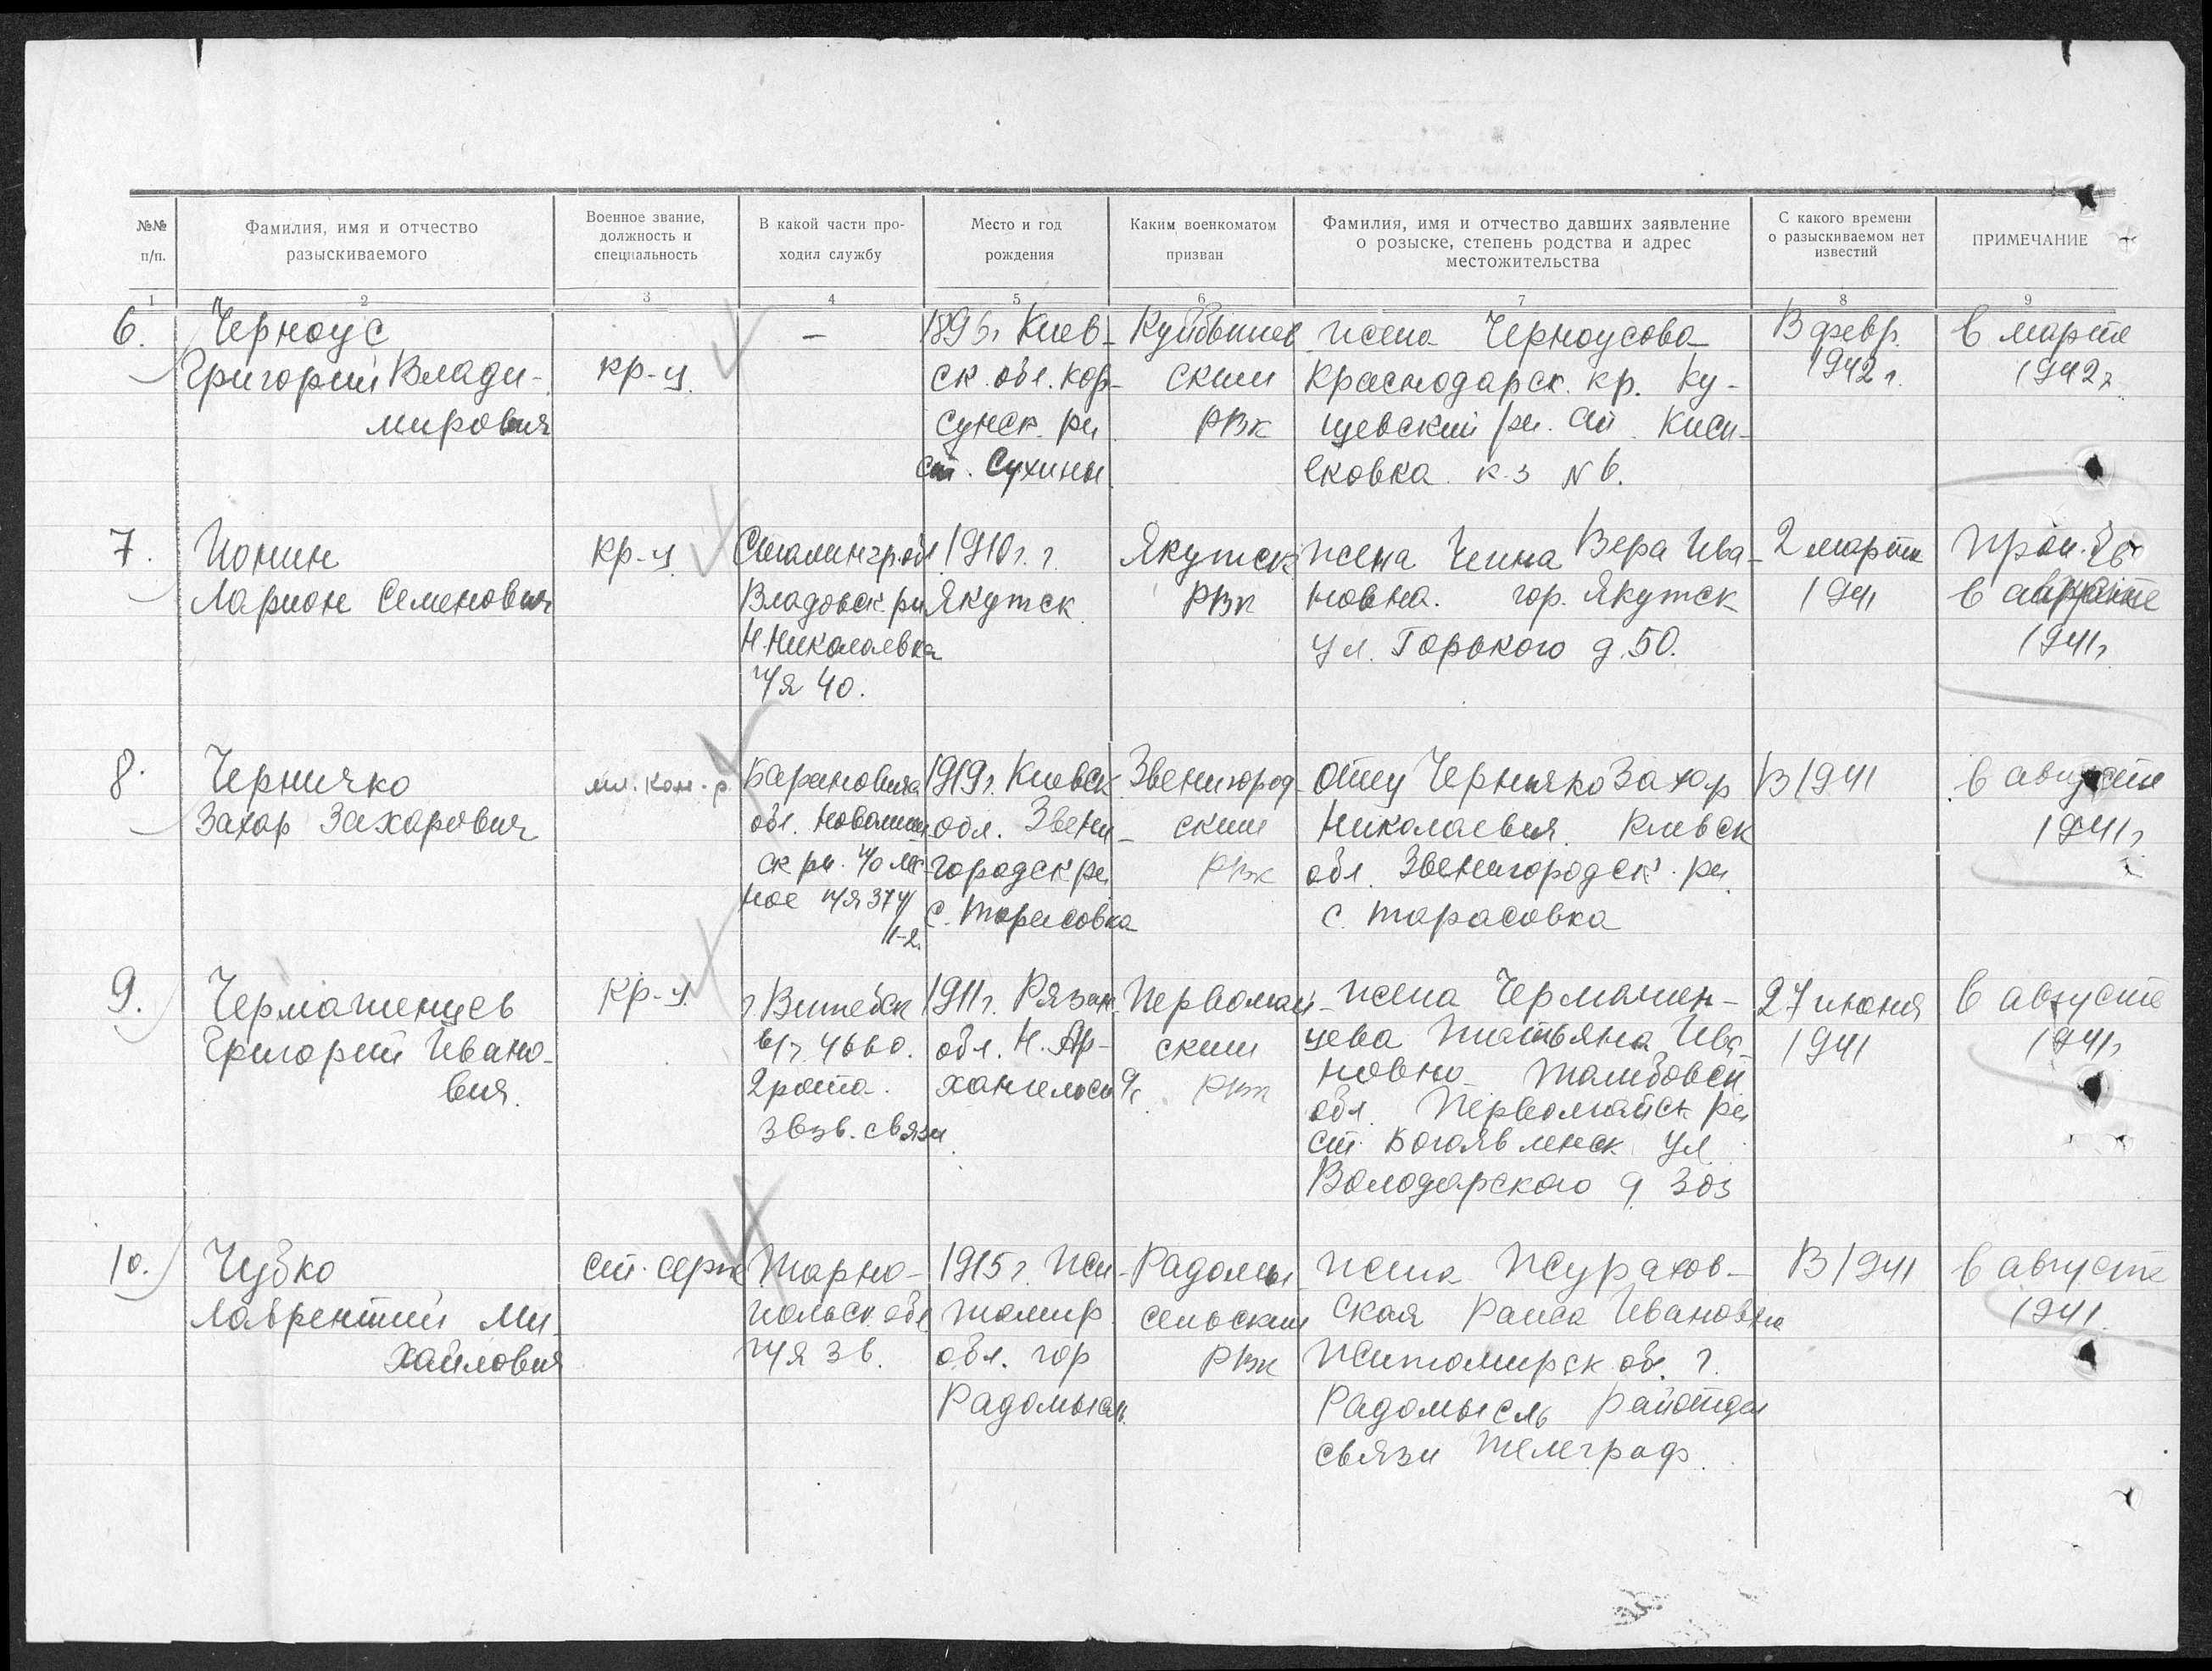 №№ п/п.
Фамилия, имя и отчество разыскиваемого
Военное звание, должность и специальность
В какой части проходил службу
Место и год рождения
Каким военкоматом призван
Фамилия, имя и отчество давших заявление о розыске, степень родства и адрес местожительства
С какого времени о разыскиваемом нет известий
ПРИМЕЧАНИЕ
1 2 3 4 5 6 7 8 9
6.
Черноус
Григорий Влади-
мирович
кр-ц
—
1896г Киев-
ск. обл. Кор-
сунск. рн
ст. Сухины
Куйбышев
ским
РВК
жена Черноусова
Краснодарск. кр. Ку-
щевский рн. ст. Кисл-
яковка к-з N 6.
В февр.
1942 г.
в марте
1942г
7.
Ионин
Ларион Семенович
кр-ц
Сталингр.обл
Владовск. рн
Н. Николаевка
п/я 40.
1910 г. г.
Якутск
Якутск.
РВК
жена Вера Ива-
новна. гор. Якутск
ул. Горького д. 50.
2 марта
1941
в
1941г
8.
Черничко
Захар Захарович
мл. ком-р
Баранович.
обл.
ск рн. п/о
ное п/я 37 ч/
1-2.
1919г. Киевск
обл. Звени-
городск рн
с. Тарасовка
Звенигород-
ским
РВК
отец Черняко Захар
Николаевич Киевск
обл. Звенигородск. рн.
с. Тарасовка
В 1941
в августе
1941г
9.
Чермашенцев
Григорий Ивано-
вич.
кр-ц
г Витебск
в/ч. 4660.
2 рота.
3 взв. связи
1911г. Рязан.
обл. Н. Ар-
хангельск
Первомай-
ским
РВК
жена Чермашен-
цева Татьяна Ива-
новна Тамбовск
обл. Первомайск рн
ст. Богоявленск ул
Володарского д. 303
27 июня
1941
в августе
1941г
10.
Чубко
Лаврентий Ми-
хайлович
ст. серж
Тарно-
польск. обл
п/я 38.
1915 г. Жи-
томир
обл. гор
Радомысль.
Радомы
сельским
РВК
жена Журахов-
ская Раиса Ивановна
Житомирск об. г.
Радомысль Райотдел
связи телеграф.
В 1941
в августе
1941.